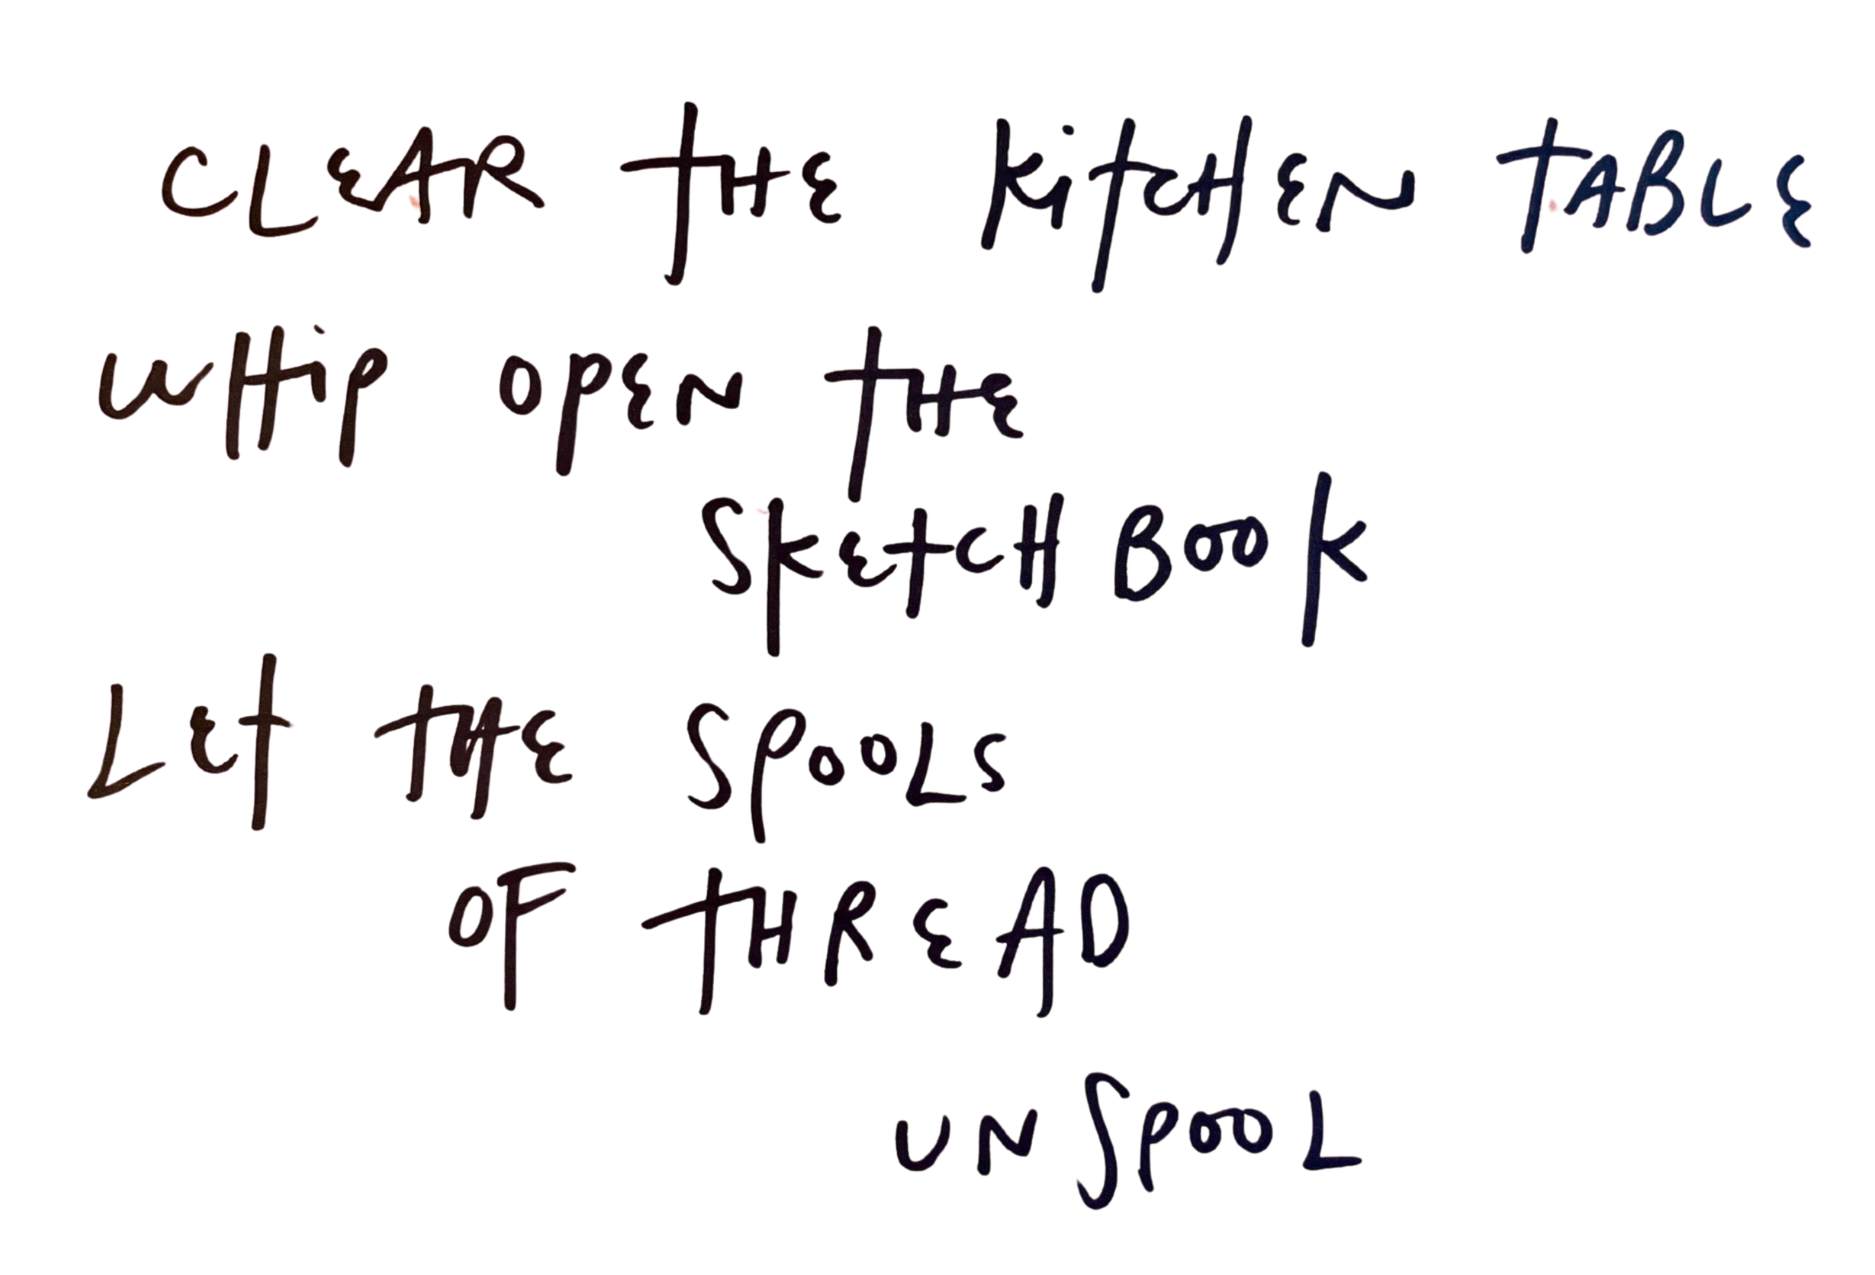 CLEAR THE KiTCHEN TABLE
WHiP OPEN THE
SKETCH BOOK
LET THE SPOOLS
OF THREAD
UNSPOOL